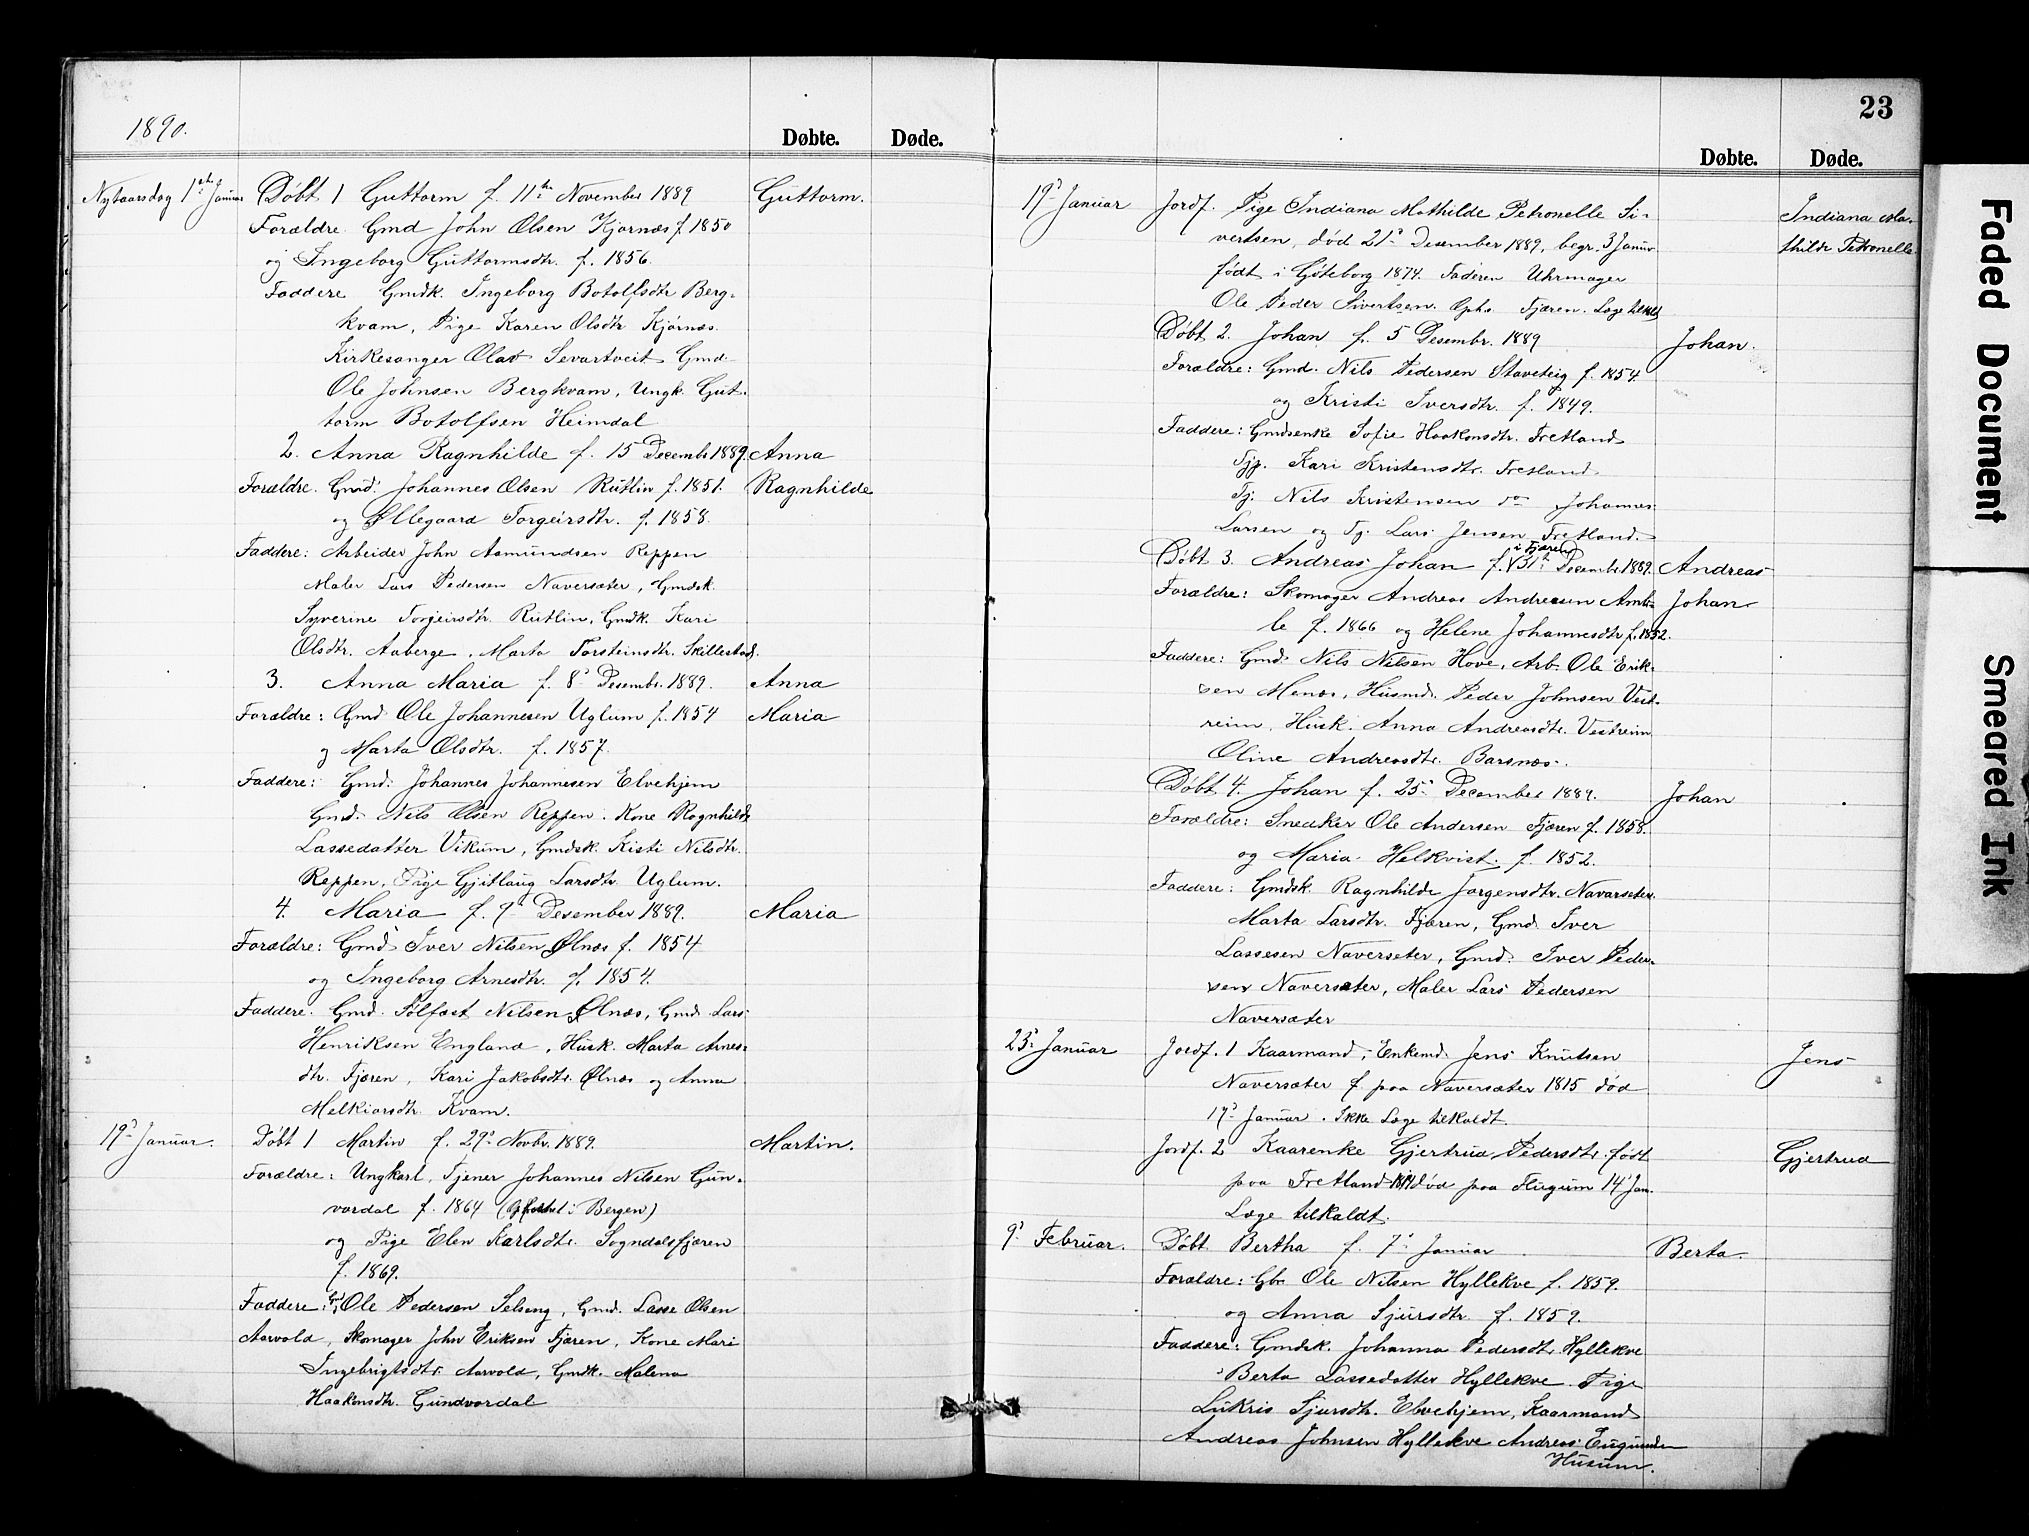 1890.
Døbte. Døde.
Nytaarsdag 1ste Januar Døbt 1 Guttorm f. 11te November 1889 Guttorm.
Forældre Gmd John Olsen Kjørnæs f. 1850
og Ingeborg Guttormsdtr. f. 1856.
Faddere Gmdk. Ingeborg Botolfsdtr Berg-
kvam, Pige Karen Olsdtr Kjørnæs.
Kirkesanger Olav Gmd
Ole Johnsen Bergkvam, Ungk. Gut-
torm Botolfsen Heimdal
2. Anna Ragnhilde f. 15 Decembr 1889. Anna
Forældre. Gmd. Johannes Olsen Rutlin f. 1851. Ragnhilde
og Ollegaard Torgeirsdtr. f. 1858.
Faddere: Arbeider John Aamundsen Reppen
Maler Lars Pedersen Naversæter, Gmdsk.
Syverine Torgeirsdtr. Rutlin, Gmdk. Kari
Olsdtr. Aaberge, Marta Torsteinsdtr. Skillestad.
3. Anna Maria f. 8de Desembr. 1889. Anna
Forældre: Gmd Ole Johannesen Uglum f. 1854 Maria
og Marta Olsdtr. f. 1857.
Faddere: Gmd. Johannes Johannesen Elvehjem
Gmd. Nils Olsen Reppen. Kone Ragnhilde
Lassedatter Vikum, Gmdsk. Kisti Nilsdtr.
Reppen, Pige Gjitlaug Larsdtr. Uglum.
4. Maria f. 9de Desember 1889. Maria
Forældre: Gmd. Iver Nilsen Ølnæs f. 1854
og Ingeborg Arnesdtr. f. 1854.
Faddere. Gmd. Tolfast Nilsen Ølnæs, Gmd. Lars
Henriksen England, Husk. Marta Arnes-
dtr. Fjæren, Kari Jakobsdtr. Ølnæs og Anna
Melkiorsdtr. Kvam.
19de Januar. Døbt 1 Martin f. 29de Novbr. 1889. Martin.
Forældre: Ungkarl, Tjener Johannes Nilsen Gun-
vordal f. 1864 ( i Bergen)
og Pige Elen Karlsdtr. Sogndalsfjæren
f. 1869.
Faddere: Gmd Ole Pedersen Selseng, Gmd. Lasse Olsen
Aarvold, Skomager John Eriksen Fjæren, Kone Mari
Ingebrigtsdtr. Aarvold, Gmdk. Malena
Haakonsdtr. Gundvordal
23
Døbte. Døde.
19de Januar Jordf. Pige Indiana Mathilde Petronelle Si- Indiana Ma-
vertsen, død 21de Desember 1889, begr. 3 Januar thilde Petronelle
født i Göteborg 1874. Faderen Uhrmager
Ole Peder Sivertsen. Oph. Fjæren. Læge tilkldt
Døbt 2. Johan f. 5 Desembr. 1889 Johan.
Forældre: Gmd. Nils Pedersen Staveteig f. 1854.
og Kristi Iversdtr. f. 1849.
Faddere: Gmdsenke Sofie Haakonsdtr. Fretland
Tjp. Kari Kristensdtr. Fretland.
Tj. Nils Kristensen do Johannes
Larsen og Tj. Lars Jensen Fretland.
Døbt 3. Andreas Johan f. i Fjæren 31te Decembr. 1889. Andreas
Forældre: Skomager Andreas Andresen Amb- Johan
le f. 1866 og Helene Johannesdtr f. 1852.
Faddere: Gmd. Nils Nilsen Hove, Arb. Ole Erik-
sen Menæs, Husmd. Peder Johnsen Vest-
reim, Husk. Anna Andreasdtr. Vestreim
Oline Andreasdtr. Barsnæs.
Døbt 4. Johan f. 25de December 1889. Johan
Forældre: Snedker Ole Andersen Fjæren f. 1858.
og Maria Helkvist. f. 1852.
Faddere: Gmdsk. Ragnhilde Jørgensdtr. Navarseter.
Marta Larsdtr. Fjæren, Gmd. Iver
Lassesen Naverseter, Gmd. Iver Peder-
sen Naversæter, Maler Lars Pedersen
Naversæter
23de Januar Jordf. 1 Kaarmand, Enkemd. Jens Knutsen Jens
Naversæter f. paa Naversæter 1815 død
17de Januar. Ikke Læge tilkaldt.
Jordf. 2 Kaarenke Gjertrud Pedersdtr. født Gjertrud
paa Fretland død paa Flugum 14 Jan.
Læge tilkaldt.
9de Februar. Døbt Bertha f. 7de Januar Berta.
Forældre: Gbr. Ole Nilsen Hyllekve f. 1859.
og Anna Sjursdtr. f. 1859.
Faddere: Gmdsk. Johanna Pedersdtr. Hyllekve
Berta Lassedatter Hyllekve. Pige
Lukris Sjursdtr. Elvehjem, Kaarmand
Andreas Johnsen Hyllekve Andreas
Husum.
Faded Document
Smeared Ink